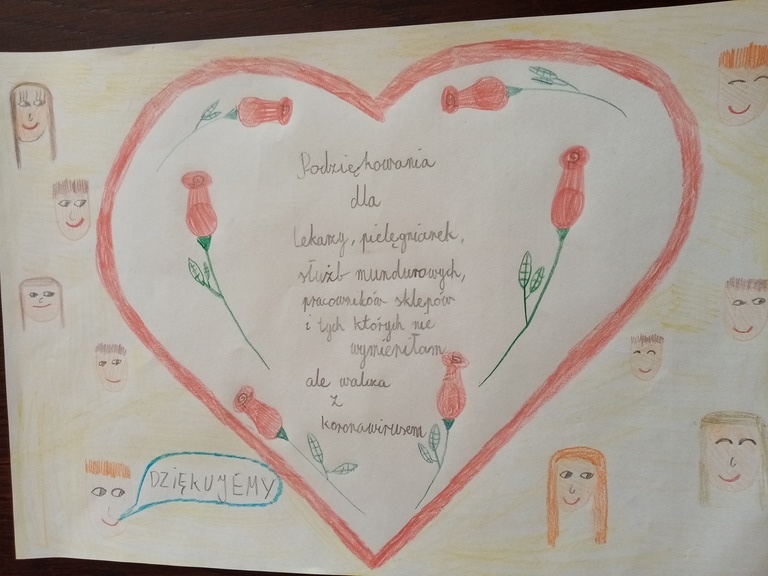 Podziękowania
dla
lekarzy, pielęgniarek,
służb mundurowych,
pracowników sklepów
i tych których nie
wymieniłam
ale walczą
z
koronawirusem
DZIĘKUJEMY